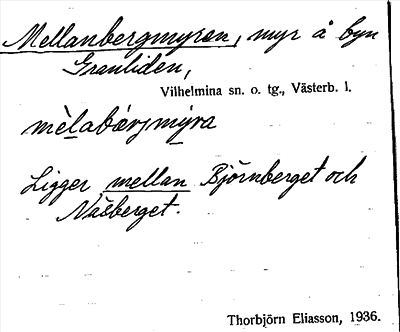 Mellanbergmyren, myr å byn
Granliden,
Vilhelmina sn. o. tg., Västerb. l.
mèlabærjmýra
Ligger mellan Björnberget och
Näsberget.
Thorbjörn Eliasson, 1936.